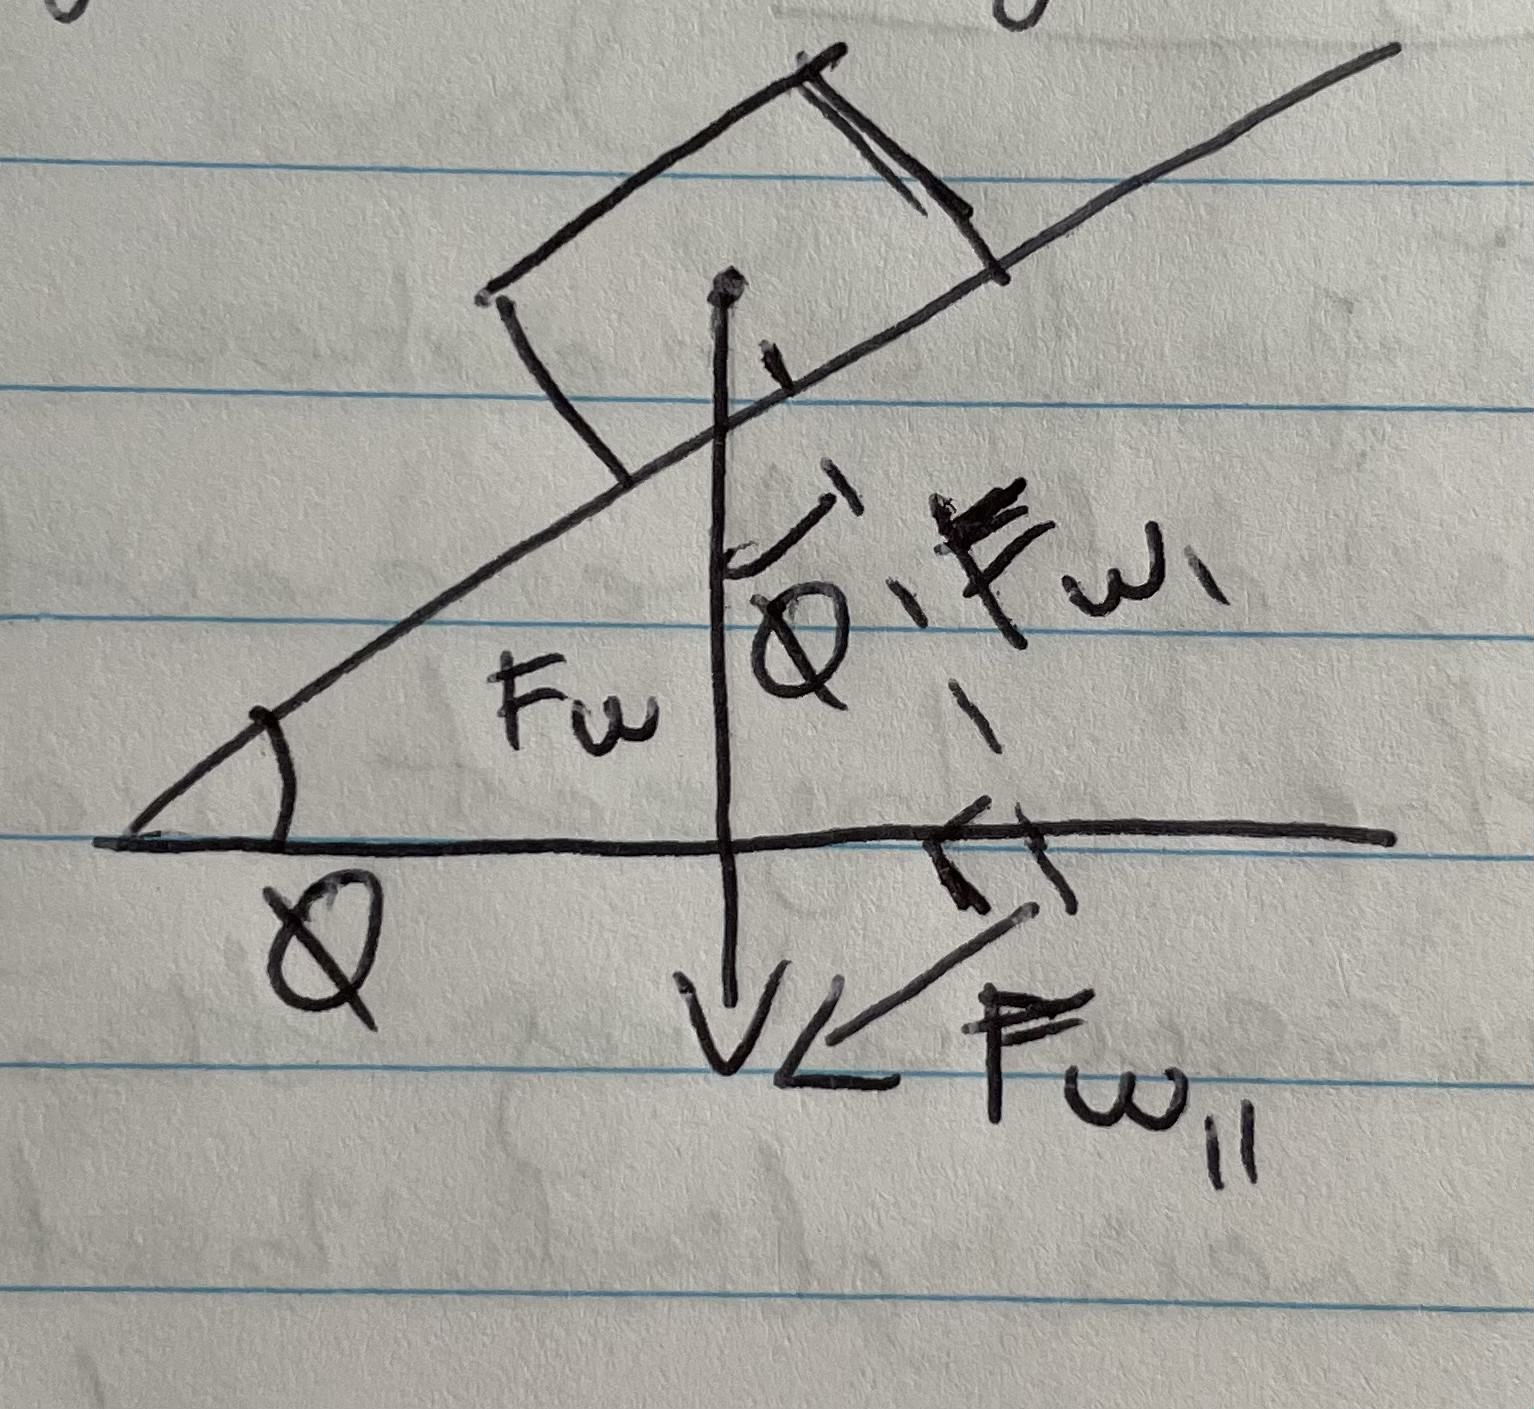 Fw
θ
Fw⊥
θ
Fw||